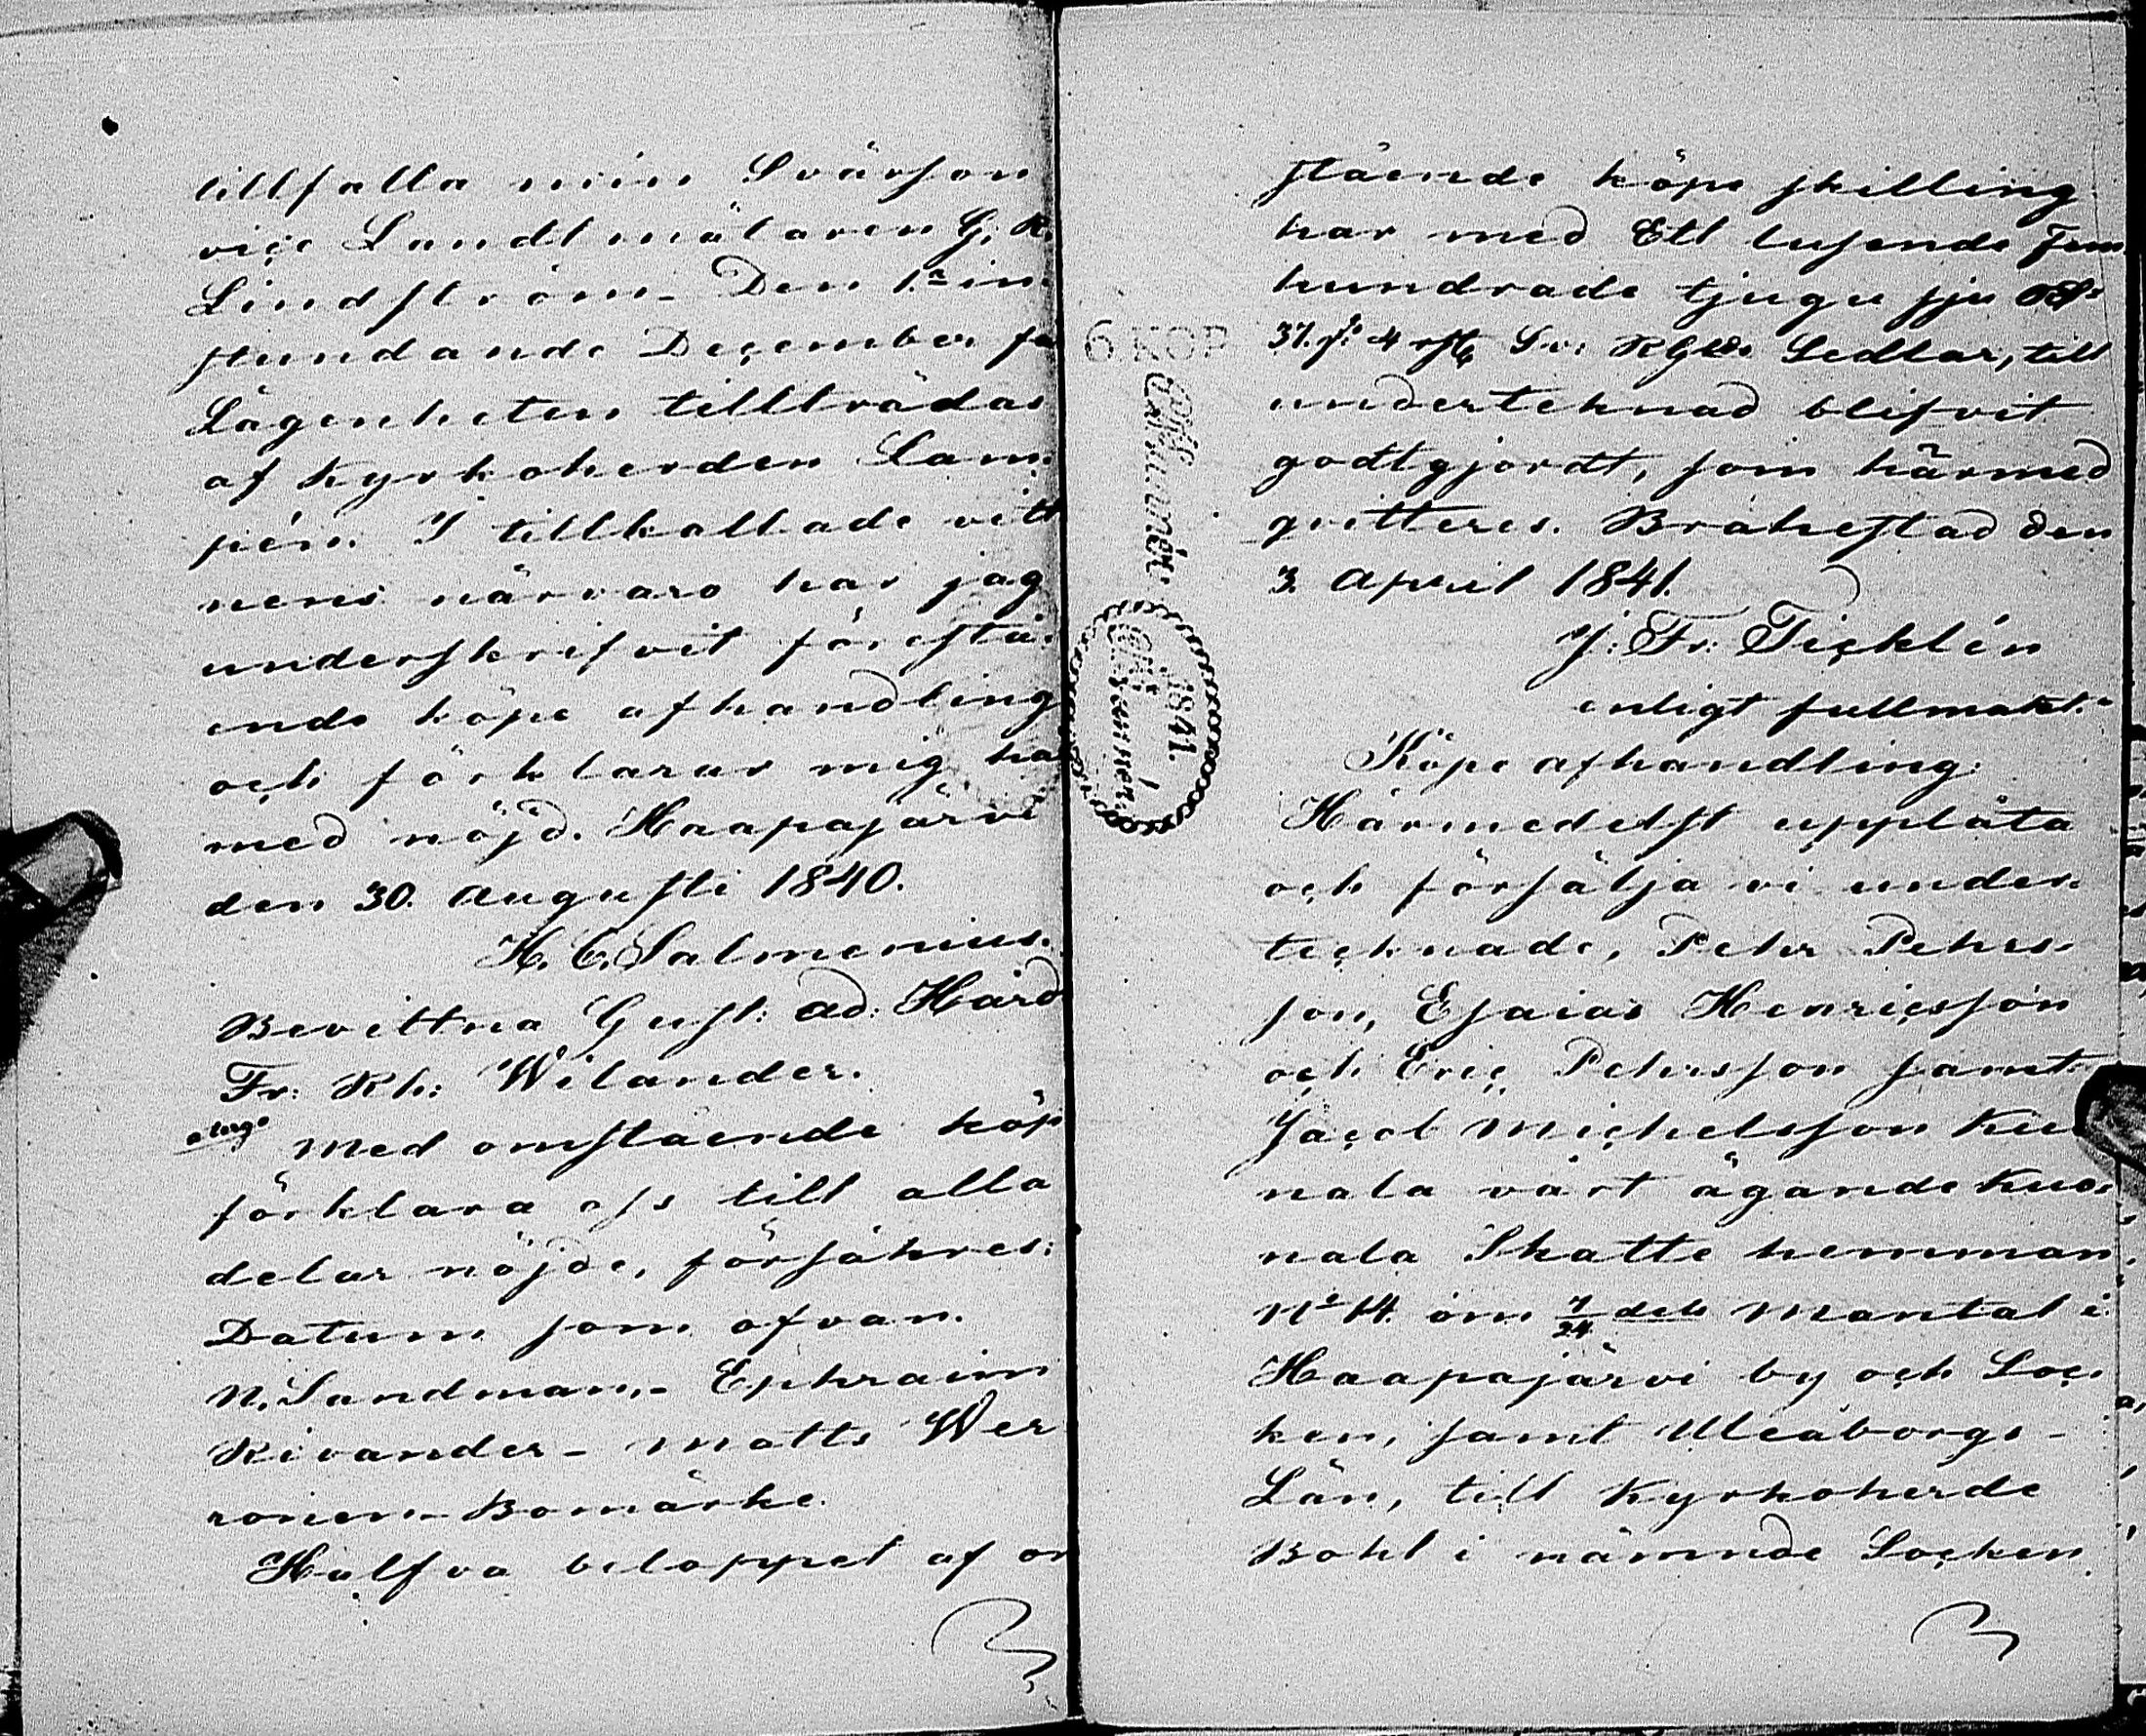 tillfalla min Svärson
vice Landtmätaren G. R.
Lindström – Den 1a in
stundande December få
Lägenheten tillträdas
af Kyrkoherden Lam
pén. I tillkallade vitt
nens närvaro har jag
underskrifvit förestå:
ende köpe afhandling
och förklarar mig här
med nöjd. Haapajärvi
den 30. Augusti 1840.
H. C. Salmenius.
Bevittna Gust: Ad: Hård
Fr: Rh: Wilander.
Med omstående köp
förklara oss till alla
delar nöjde, försäkres:
Datum som ofvan.
N. Sandman. – Ephraim
Kivander – Matts Wer
ronen Bomärke.
Halfva beloppet af om
6 KOP
1841.
stående köpe skilling
har med Ett tusende Fem
hundrade tjugu sju
37. s. 4 rst Sv: RGds Sedlar, till
underteknad blifvit
godtgjordt, som härmed
qvitteres. Brahestad den
3. April 1841.
J: Fr: Ticklén
enligt fullmakt.
Köpe afhandling:
Härmedelst upplåta
och försälja vi under
tecknade, Pehr Pehrs
son, Esaias Henricsson
och Eric Pehrsson samt
Jacob Michelsson Kuo
nala vårt ägande Kuo
nala Skatte hemman
No 14. om 7/24 dels Mantal i
Haapajärvi by och Soc
ken, samt Uleåborgs –
Län, till Kyrkoherde
Bohl i nämnde Socken